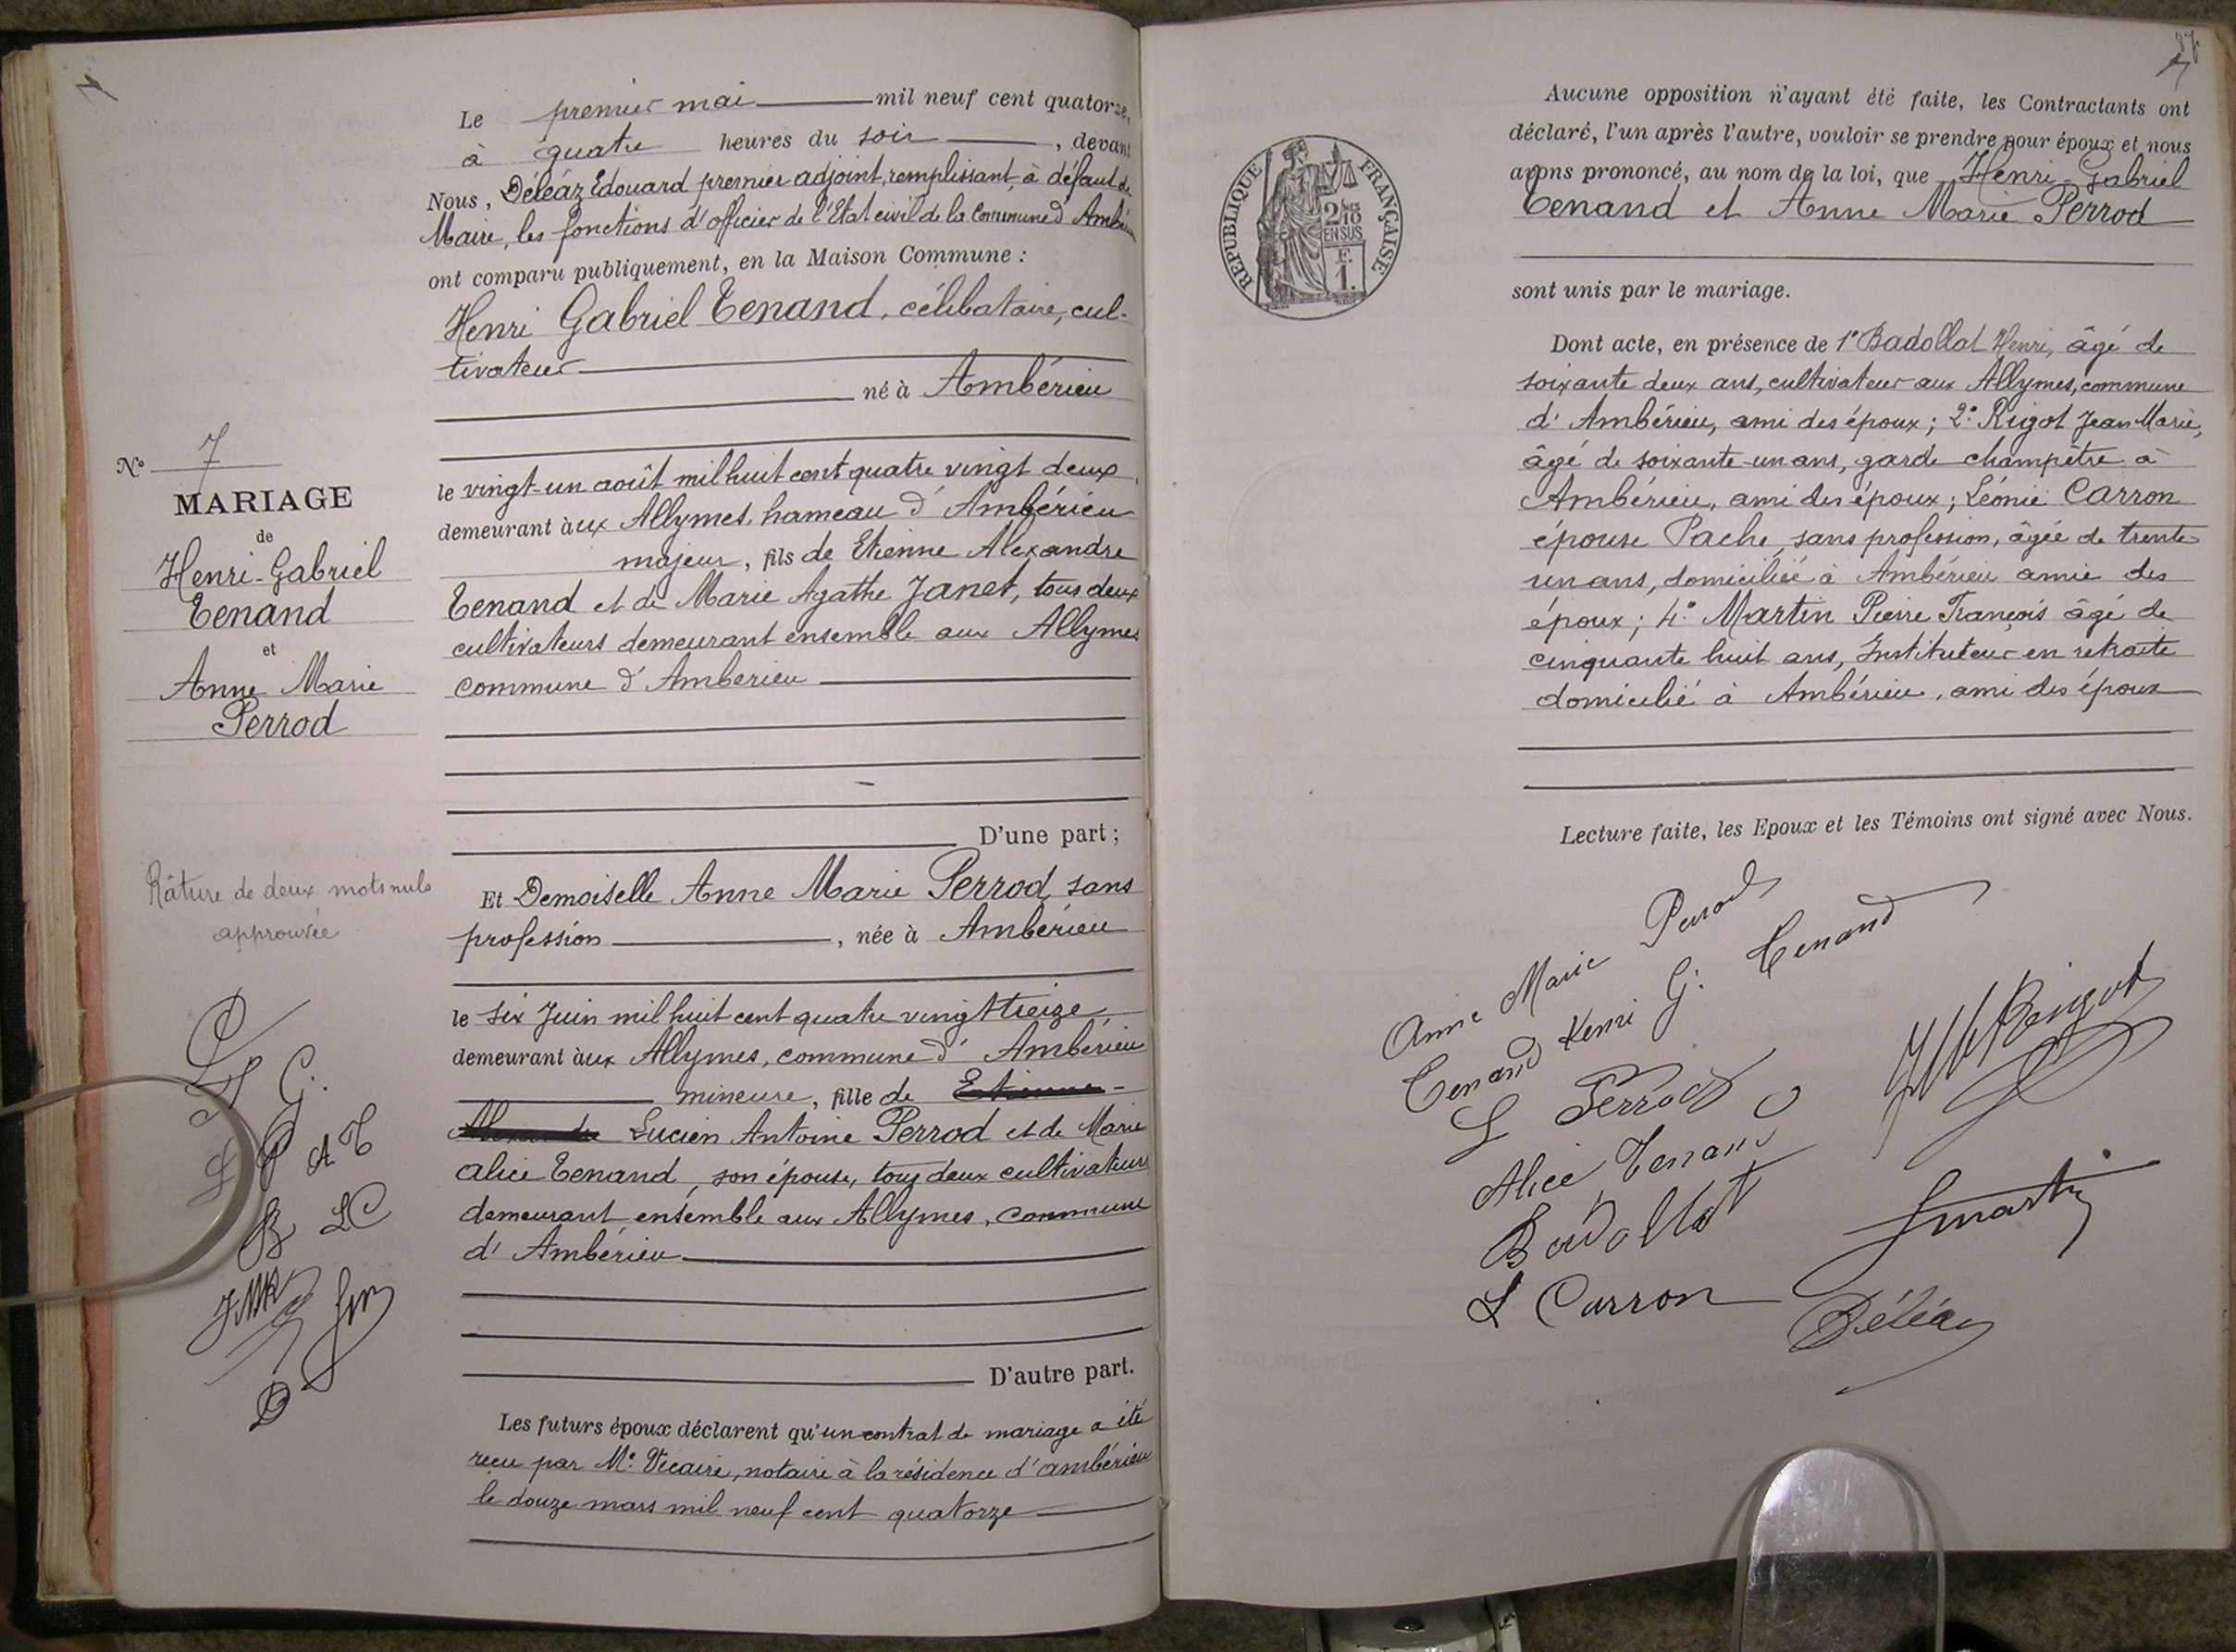 Le premier mai mil neuf cent quatorze,
à quatre heures du soir, devant
Nous, Déléaz Edouard premier adjoint, remplissant, à défaut de
Maire, les fonctions d'officier de l'Etat civil de la Commune d'Ambérieu
ont comparu publiquement, en la Maison Commune :
Henri Gabriel Tenand, célibataire, cul-
tivateur
né à Ambérieu
le vingt-un août mil huit cent quatre vingt deux
demeurant aux Allymes, hameau d'Ambérieu
majeur, fils de Etienne Alexandre
Tenand et de Marie Agathe Janet, tous deux
cultivateurs demeurant ensemble aux Allymes
commune d'Amberieu
D'une part ;
N° 7
MARIAGE
de
Henri-Gabriel
Tenand
et
Anne Marie
Perrod
Et Demoiselle Anne Marie Perrod, sans
profession, née à Ambérieu
le six Juin mil huit cent quatre vingt treize
demeurant aux Allymes, commune d'Ambérieu
mineure, fille de Etienne-
Alexandre Lucien Antoine Perrod et de Marie
alice Tenand, son épouse, tous deux cultivateurs
demeurant ensemble aux Allymes, commune
d'Ambérieu
D'autre part.
Râture de deux mots nuls
approuvée
T G.
L P A T
B LC
JMR
D
Les futurs époux déclarent qu'un contrat de mariage a été
reçu par Me Vicaire, notaire à la résidence d'ambérieu
le douze mars mil neuf cent quatorze
REPUBLIQUE FRANÇAISE
2/10
EN SUS
F.
1.
Aucune opposition n'ayant été faite, les Contractants ont
déclaré, l'un après l'autre, vouloir se prendre pour époux et nous
avons prononcé, au nom de la loi, que Henri-Gabriel
Tenand et Anne Marie Perrod
sont unis par le mariage.
Dont acte, en présence de 1° Badollat Henri, âgé de
soixante deux ans, cultivateur aux Allymes, commune
d'Ambérieu, ami des époux ; 2° Rigot Jean Marie,
âgé de soixante-un ans, garde champêtre à
Ambérieu, ami des époux ; Léonie Carron
épouse Pache, sans profession, âgée de trente-
un ans, domiciliée à Ambérieu amie des
époux ; 4° Martin Pierre François âgé de
cinquante huit ans, Instituteur en retraite
domicilié à Ambérieu, ami des époux
Lecture faite, les Epoux et les Témoins ont signé avec Nous.
Anne Marie Perrod
Tenand Henri G. Tenand
L Perrod
JM Rigot
Alice Tenand
Badollat
Martin
L Carron
Déléaz